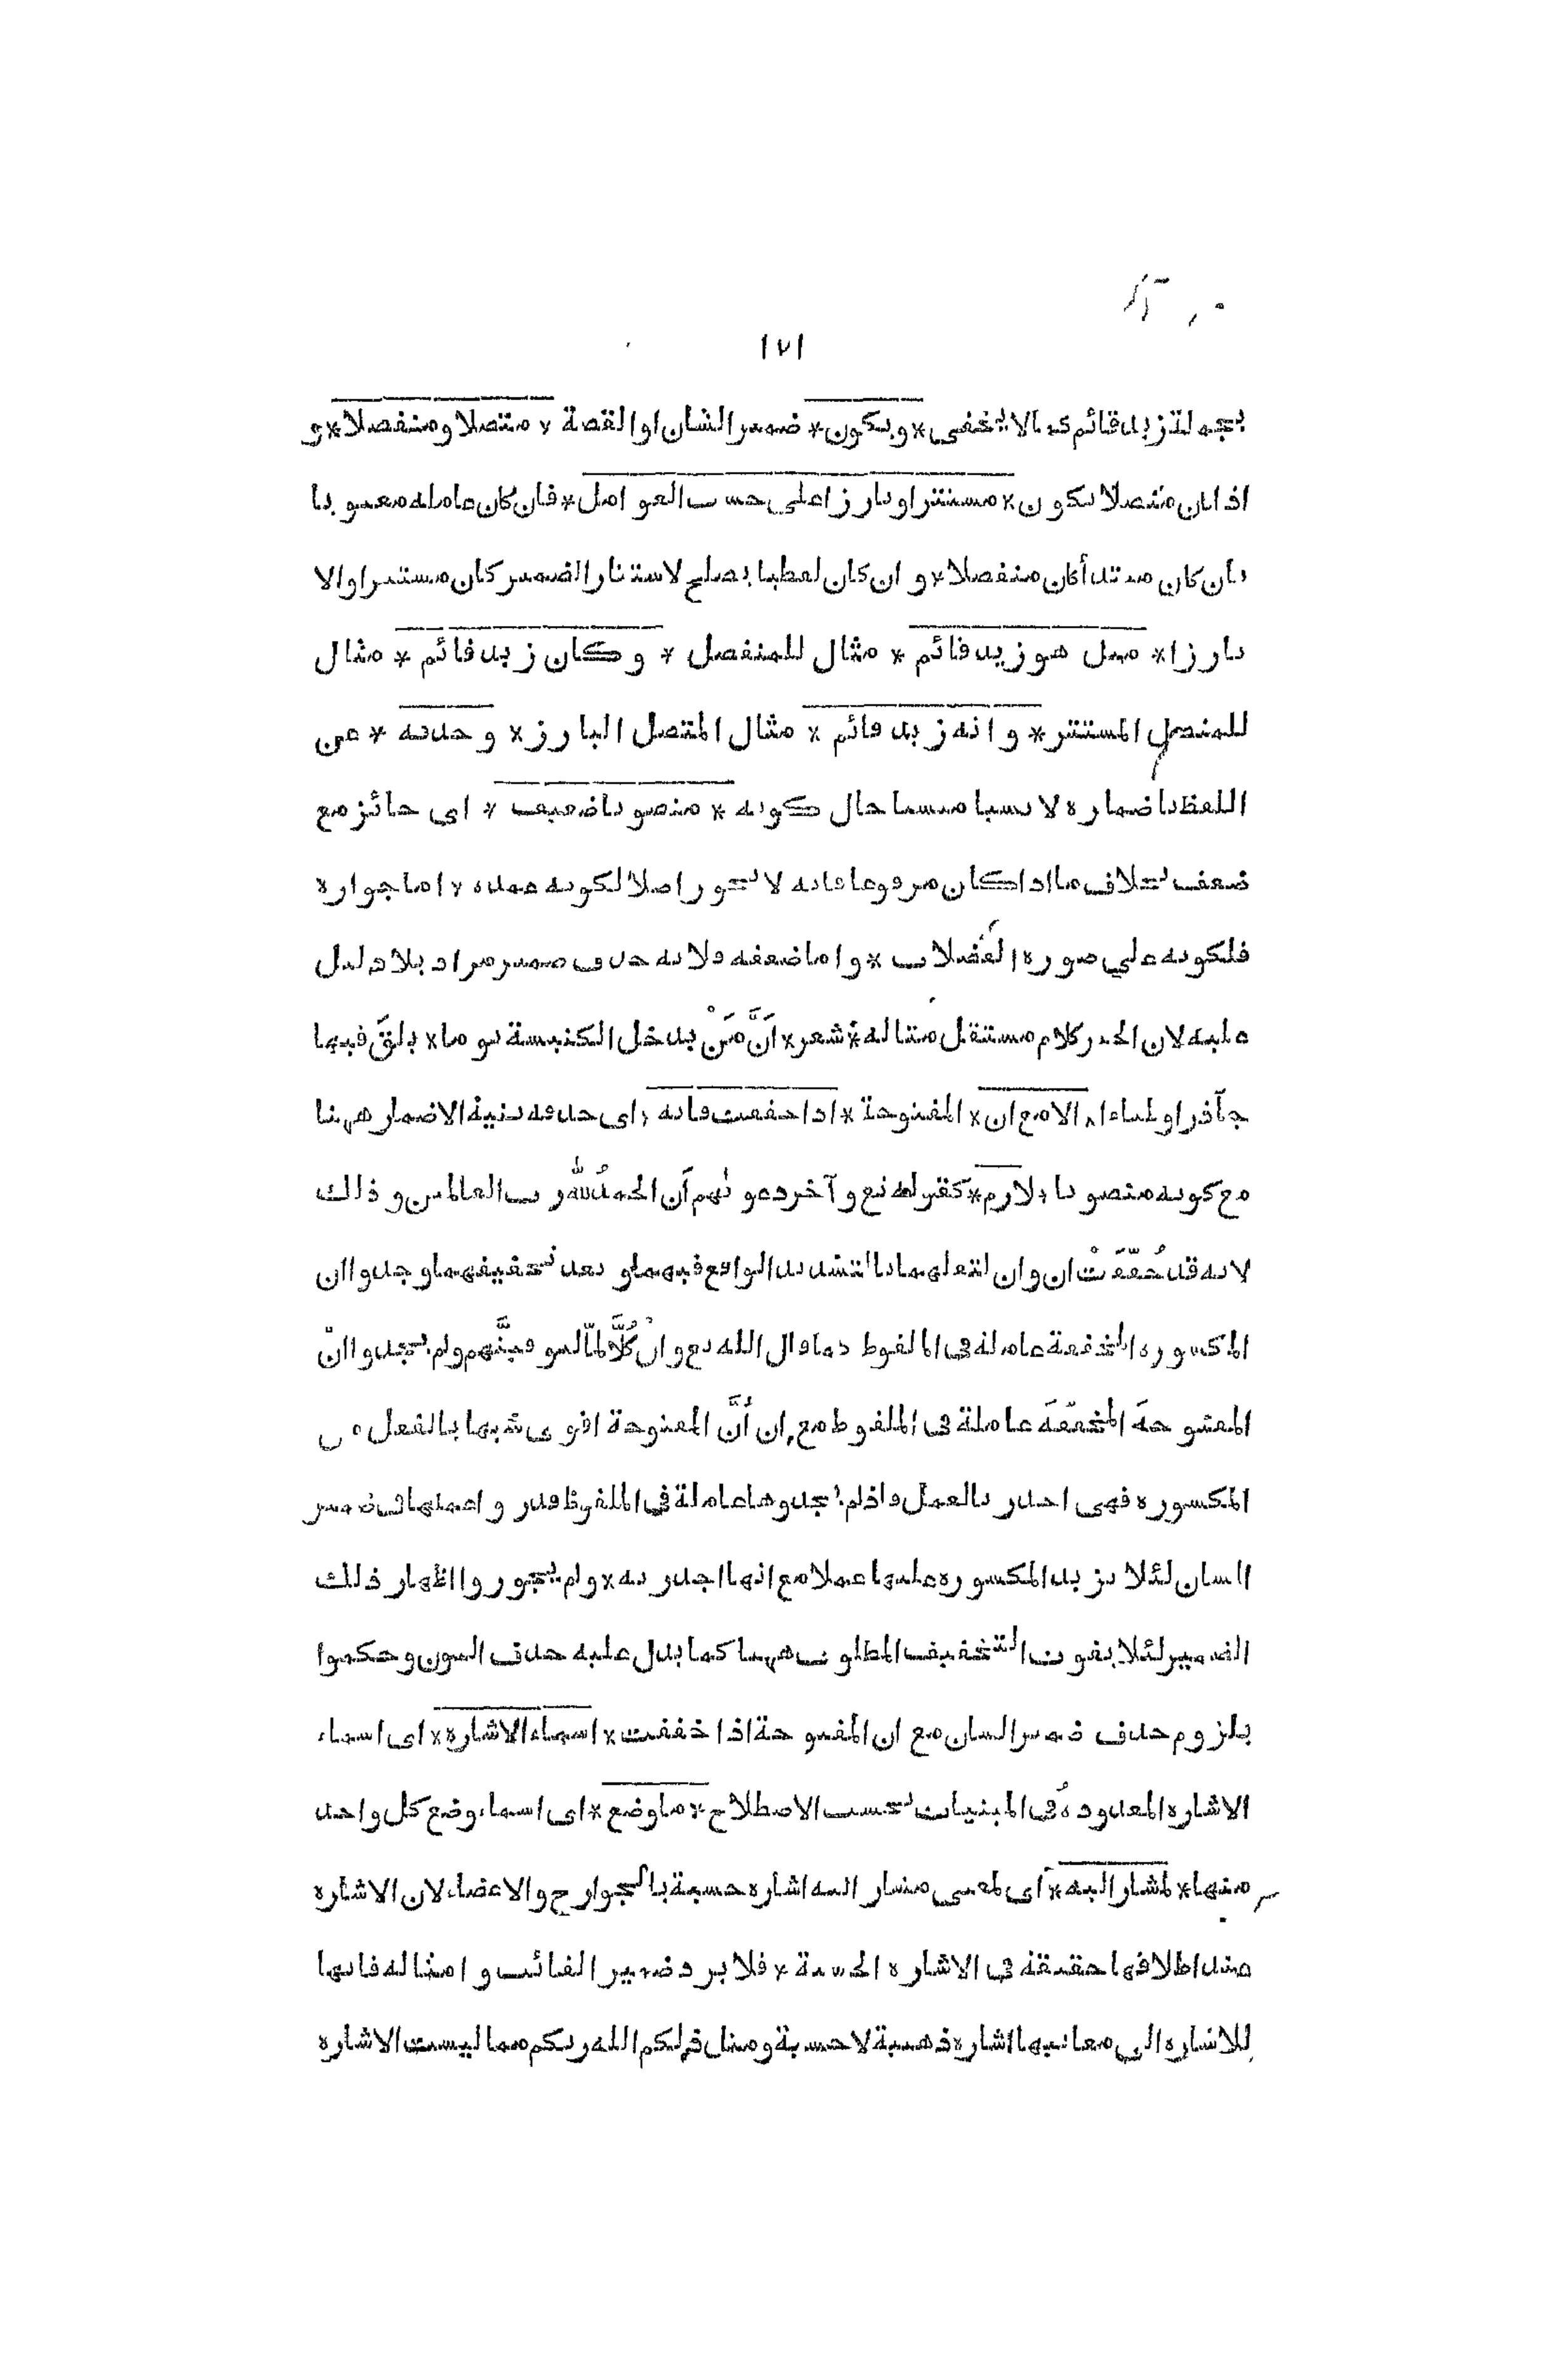 ١٧١
بجملة زيد قائم كما لا يخفى * ويكون * ضمير الشان او القصة * متصلا ومنفصلا * و
اذا كان متصلا يكون * مستترا او بارزا على حسب العوامل * فان كان عامله معنويا
بان كان مبتدأ كان منفصلا * و ان كان لفظيا يصلح لاستتار الضمير كان مستترا والا
بارزا * مثل هو زيد قائم * مثال للمنفصل * وكان زيد قائم * مثال
للمتصل المستتر * و انه زيد قائم * مثال المتصل البارز * وحذفه * عن
اللفظ باضماره لا نسيا منسيا حال كونه * منصوبا ضعيف * اى جائز مع
ضعف بخلاف ما اذا كان مرفوعا فانه لا يجوز اصلا لكونه عمدة * اما جوازه
فلكونه على صورة الفضلات * واما ضعفه فلانه حذف ضمير مراد بلا دليل
عليه لان الخبر كلام مستقل مثاله * شعر * اَنَّ مَنْ يدخل الكنيسة يوما * يلقَ فيها
جآذر او ظباء * الا مع ان * المفتوحة * اذا خففت فانه * اى حذفه بنية الاضمار ههنا
مع كونه منصوبا * لازم * كقوله تع وآخر دعوٰهم اَن الحمدُ للّٰه رب العالمين وذلك
لانه قد خُفّفَتْ ان وان لثقلهما بالتشديد الواقع فيهما وبعد تخفيفهما وجدوا ان
المكسورة المخففة عاملة فى الملفوظ كما قال الله تع وانْ كُلَّا لمّا ليوفينَّهم ولم يجدوا انّ
المفتوحةَ المخفّفَة عاملة فى الملفوظ مع ان اَنَّ المفتوحة اقوى شبها بالفعل من
المكسورة فهى اجدر بالعمل واذ لم يجدوها عاملة فى الملفوظ قدروا عملها فى ضمير
الشان لئلا يزيد المكسورة عليها عملا مع انها اجدر به * ولم يجوزوا اظهار ذلك
الضمير لئلا يفوت التخفيف المطلوب ههنا كما يدل عليه حذف النون وحكموا
بلزوم حذف ضمير الشان مع ان المفتوحة اذا خففت * اسماء الاشارة * اى اسماء
الاشارة المعدودةُ فى المبنيات بحسب الاصطلاح * ما وضع * اى اسماء وضع كل واحد
منها * لمشار اليه * اى لمعنى مشار اليه اشارة حسية بالجوارح والاعضاء لان الاشارة
عند اطلاقها حقيقة فى الاشارة الحسية * فلا يرد ضمير الغائب وامثاله فانها
للاشارة الى معانيها اشارة ذهنية لا حسية ومثل ذلكم الله ربكم مما ليست الاشارة